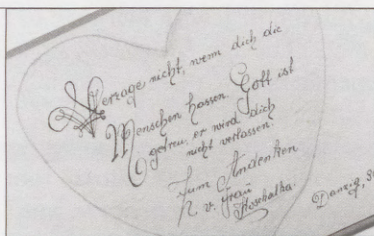 Verzage nicht, wenn dich die
Menschen hassen. Gott ist
getreu, er wird dich
nicht verlassen.
Zum Andenken
n. v. Frau
Danzig,